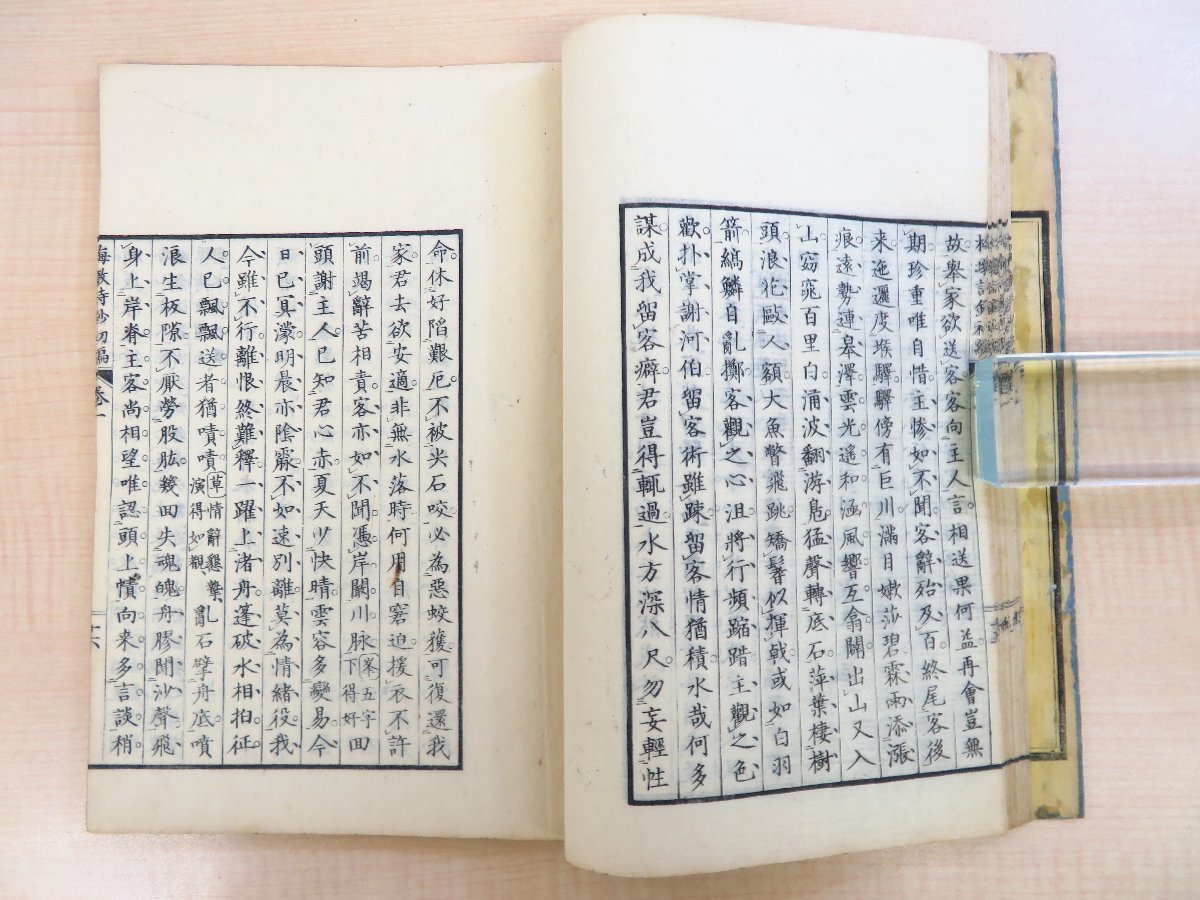 故舉家欲送客客向主人言相送果何益再會豈無
期珍重唯自惜主慘如不聞客辭殆及百終尾客後
来迤邐度堠驛驛傍有巨川滿目嫰莎碧霖雨添漲
痕遠勢連皋澤雲光遥和涵風響互翕闢出山又入
山窈窕百里白涌波翻游鳧猛聲轉底石萍葉棲樹
頭浪花毆人額大魚瞥飛跳矯髾似揮戟或如白羽
箭縞鱗自亂擲客觀之心沮將行頻踏踖主觀之色
歡扑掌謝河伯留客術雖踈留客情猶積水哉何多
謀成我留客癖君豈得輒過水方深八尺勿妄輕性
命休好陷艱厄不被尖石咬必為惡蛟獲可復還我
家君去欲安適非無水落時何用自窘迫援衣不許
前竭辭苦相責客亦如不聞憑岸闞川脉峯五字下得好回
頭謝主人已知君心赤夏天少快晴雲容多變易今
日已冥濛明晨亦陰霢不如速別離莫為情緒役我
今雖不行離恨終難釋一躍上渚舟蓬破水相拍征
人已飄飄送者猶嘖嘖草情辭懇摯演得如覩亂石擘舟底噴
浪生板隙不厭勞股肱幾回失魂魄舟膠聞沙聲飛
身上岸脊主客尚相望唯認頭上幘向来多言談稍
卷一
十六